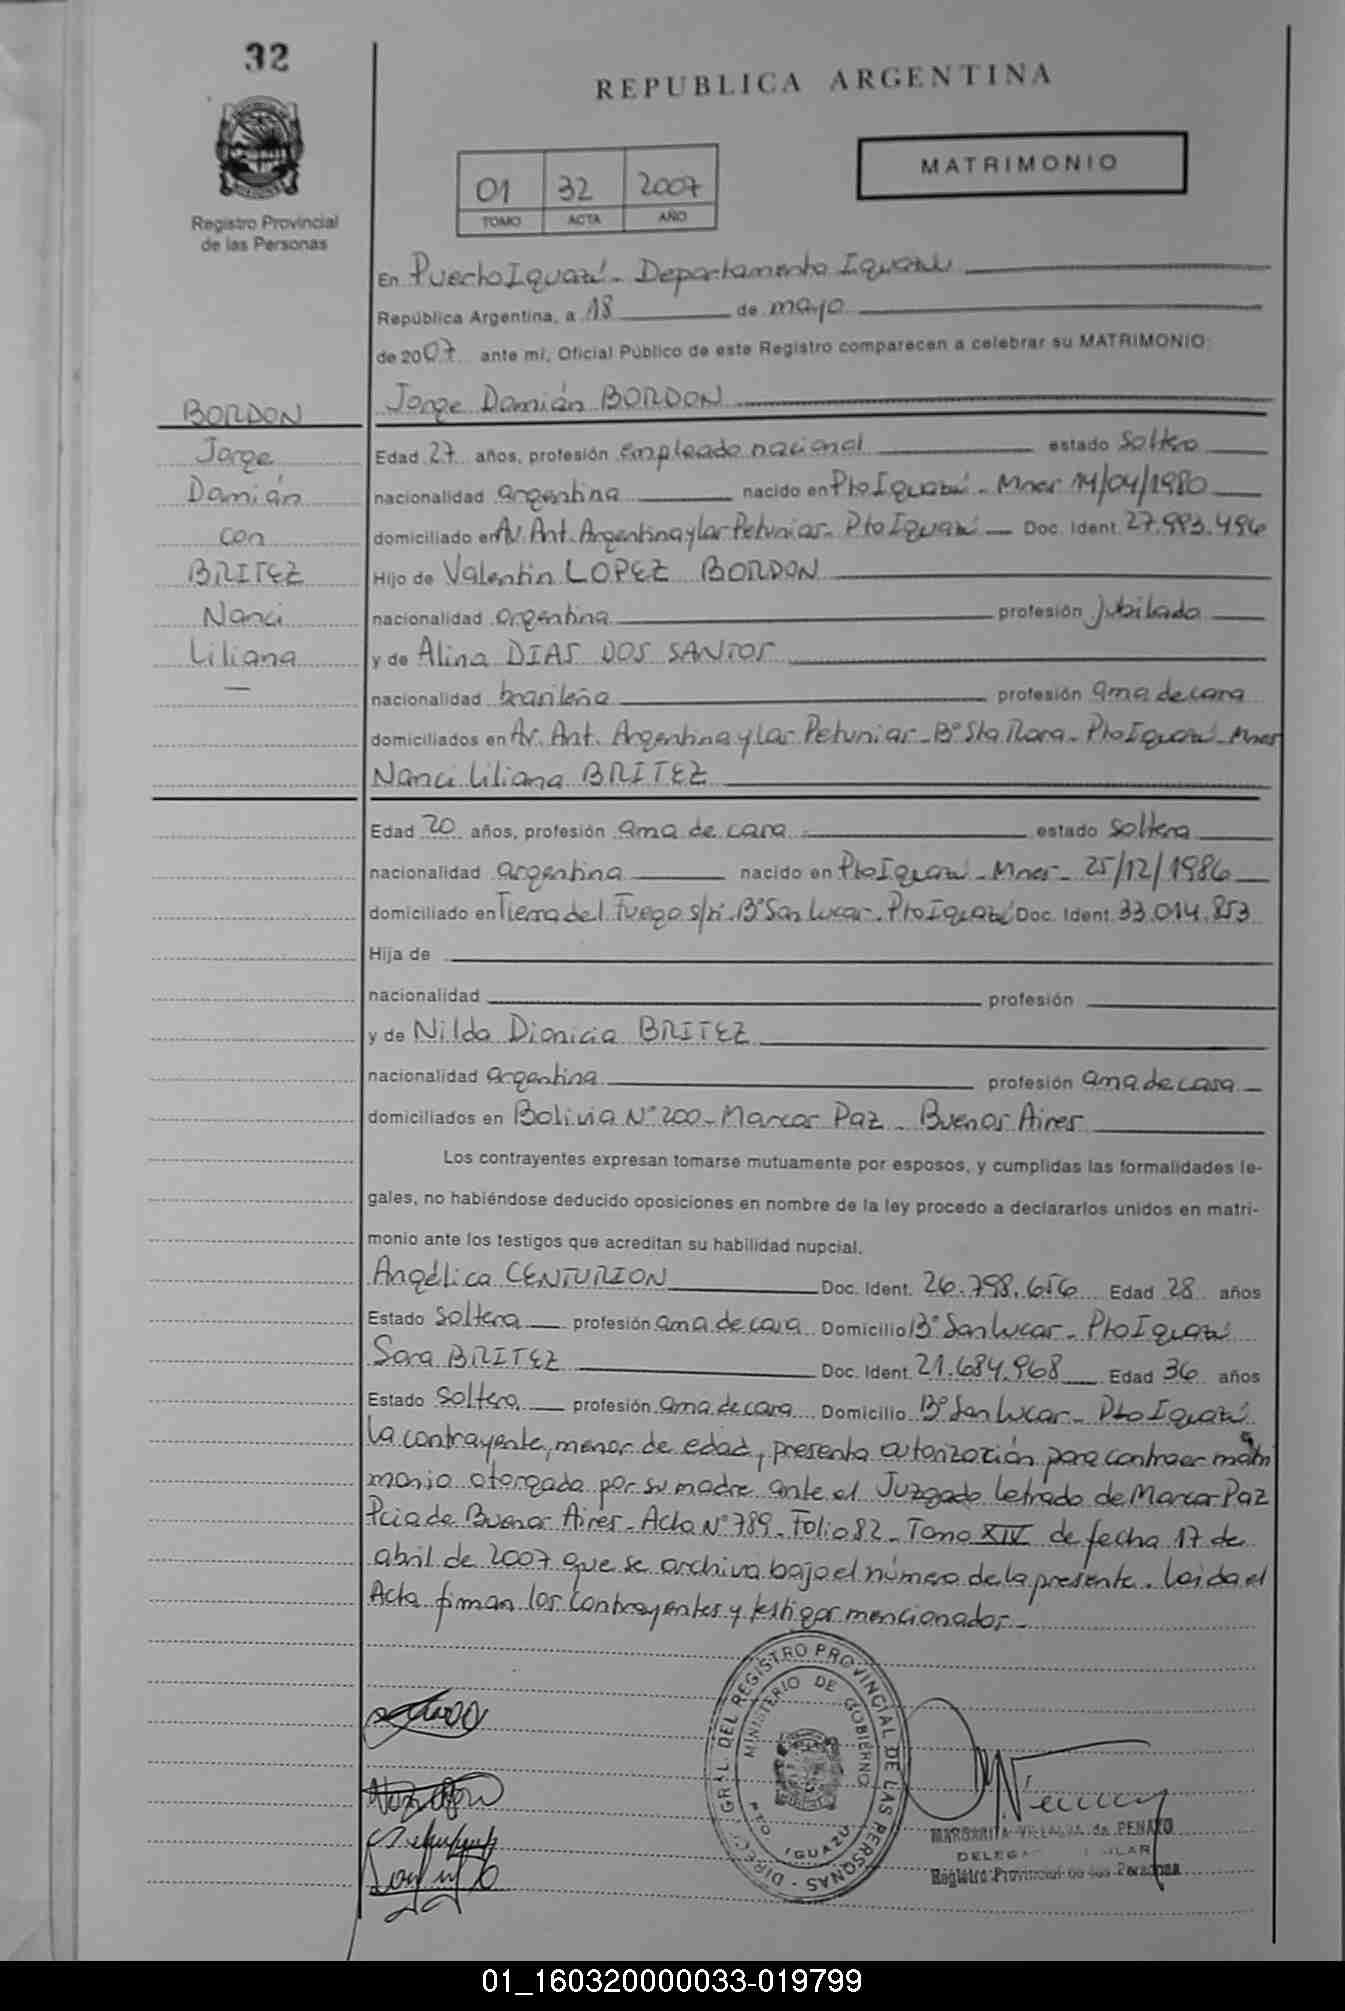 32
REPUBLICA ARGENTINA
Registro Provincial
de las Personas
01 32 2007
TOMO ACTA AÑO
MATRIMONIO
En Puerto Iguazú - Departamento Iguazú
República Argentina, a 18 de mayo
de 2007 ante mi, Oficial Público de este Registro comparecen a celebrar su MATRIMONIO:
BORDON
Jorge
Damián
con
BRITEZ
Nanci
Liliana
—
Jorge Damián BORDON
Edad 27 años, profesión empleado nacional estado soltero
nacionalidad argentina nacido en Pto Iguazú - Mnes 14/04/1980
domiciliado en Av. Ant. Argentina y las Petunias - Pto Iguazú - Doc. Ident. 27.993.496
Hijo de Valentin LOPEZ BORDON
nacionalidad argentina profesión jubilado
y de Alina DIAS DOS SANTOS
nacionalidad brasileña profesión ama de casa
domiciliados en Av. Ant. Argentina y las Petunias - Bº Sta Rosa - Pto Iguazú - Mnes
Nanci Liliana BRITEZ
Edad 20 años, profesión ama de casa estado soltera
nacionalidad argentina nacido en Pto Iguazú - Mnes - 25/12/1986
domiciliado en Tierra del Fuego s/nº - Bº San Lucas - Pto Iguazú Doc. Ident. 33.014.853
Hija de
nacionalidad profesión
y de Nilda Dionicia BRITEZ
nacionalidad argentina profesión ama de casa
domiciliados en Bolivia Nº 200 - Marcos Paz - Buenos Aires
Los contrayentes expresan tomarse mutuamente por esposos, y cumplidas las formalidades le-
gales, no habiéndose deducido oposiciones en nombre de la ley procedo a declararlos unidos en matri-
monio ante los testigos que acreditan su habilidad nupcial.
Angélica CENTURION Doc. Ident. 26.798.656 Edad 28 años
Estado soltera profesión ama de casa Domicilio Bº San Lucas - Pto Iguazú
Sara BRITEZ Doc. Ident. 21.684.968 Edad 36 años
Estado soltera profesión ama de casa Domicilio Bº San Lucas - Pto Iguazú
La contrayente, menor de edad, presenta autorización para contraer matri
monio otorgada por su madre ante el Juzgado Letrado de Marcos Paz
Pcia de Buenos Aires - Acta Nº 789 - Folio 82 - Tomo XIV de fecha 17 de
abril de 2007 que se archiva bajo el número de la presente. Leida el
Acta firman los contrayentes y testigos mencionados.-
DIREC. GRAL. DEL REGISTRO PROVINCIAL DE LAS PERSONAS
MINISTERIO DE GOBIERNO
PTO. IGUAZU
MARGARITA VILLALBA de PENAYO
Registro Provincial de las Personas
01_160320000033-019799